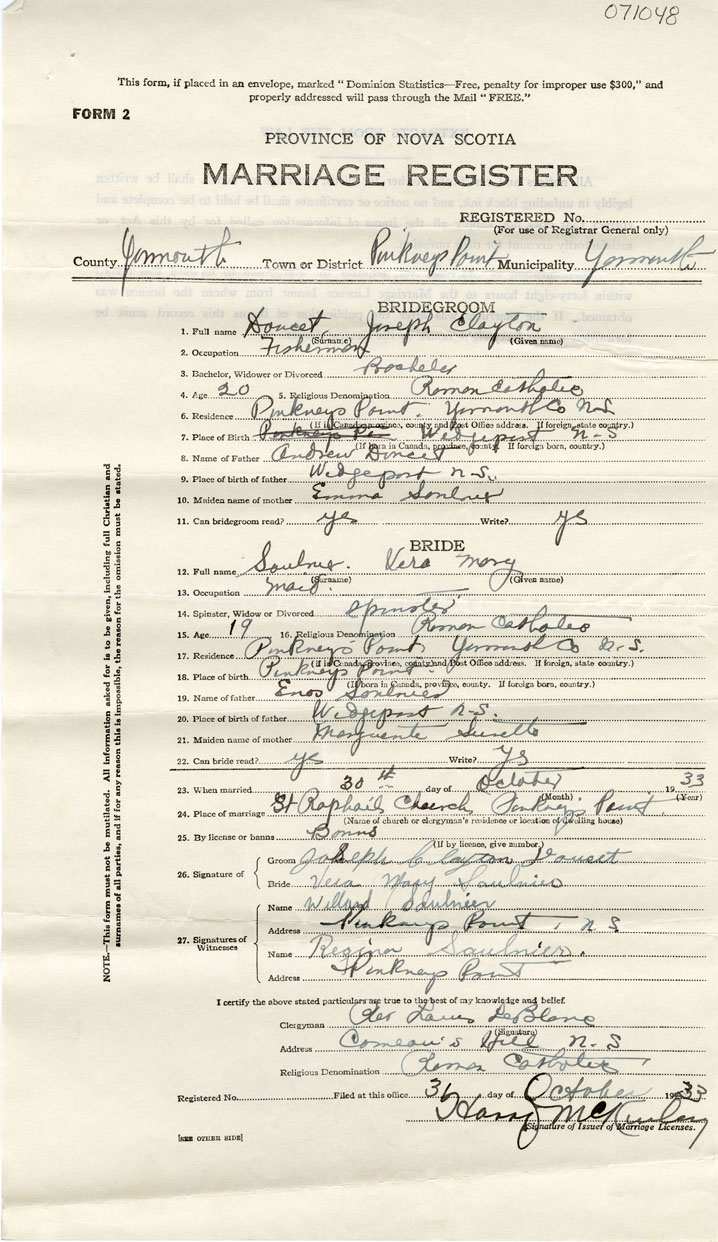 071048
This form, if placed in an envelope, marked "Dominion Statistics—Free, penalty for improper use $300," and
properly addressed will pass through the Mail "FREE."
FORM 2
PROVINCE OF NOVA SCOTIA
MARRIAGE REGISTER
REGISTERED No.
(For use of Registrar General only)
County Yarmouth Town or District Pinkneys Point Municipality Yarmouth
BRIDEGROOM
1. Full name Doucet Joseph Clayton
(Surname) (Given name)
2. Occupation Fisherman
3. Bachelor, Widower or Divorced Bachelor
4. Age 20 5. Religious Denomination Roman Catholic
6. Residence Pinkneys Point. Yarmouth Co N.S
(If in Canada, province, county and Post Office address. If foreign, state country.)
7. Place of Birth Wedgeport N-S
(If born in Canada, province, county. If foreign born, country.)
8. Name of Father Andrew Doucet
9. Place of birth of father Wedgeport N.S.
10. Maiden name of mother Emma Saulnier
11. Can bridegroom read? yes Write? yes
BRIDE
12. Full name Saulnier. Vera Mary
(Surname) (Given name)
13. Occupation Maid.
14. Spinster, Widow or Divorced Spinster
15. Age 19 16. Religious Denomination Roman Catholic
17. Residence Pinkneys Point Yarmouth Co N.S.
(If in Canada, province, county and Post Office address. If foreign, state country.)
18. Place of birth Pinkneys Point
(If born in Canada, province, county. If foreign born, country.)
19. Name of father Enos Saulnier
20. Place of birth of father Wedgeport N-S.
21. Maiden name of mother Marguerite Surette
22. Can bride read? yes Write? yes
23. When married 30th day of October 1933
(Month) (Year)
24. Place of marriage St Raphail Church, Pinkneys Point
(Name of church or clergyman's residence or location of dwelling house)
25. By license or banns Banns
(If by licence, give number.)
26. Signature of
Groom Joseph Clayton Doucet
Bride Vera Mary Saulnier
27. Signatures of Witnesses
Name Willard Saulnier
Address Pinkneys Point, N S
Name Regina Saulnier.
Address Pinkneys Point
I certify the above stated particulars are true to the best of my knowledge and belief.
Clergyman Rev Louis LeBlanc
(Signature)
Address Comeau's Hill N-S
Religious Denomination Roman Catholic
Registered No. Filed at this office 31 day of October 1933
Harry McKinlay
Signature of Issuer of Marriage Licenses.
[SEE OTHER SIDE]
NOTE.—This form must not be mutilated. All information asked for is to be given, including full Christian and
surnames of all parties, and if for any reason this is impossible, the reason for the omission must be stated.